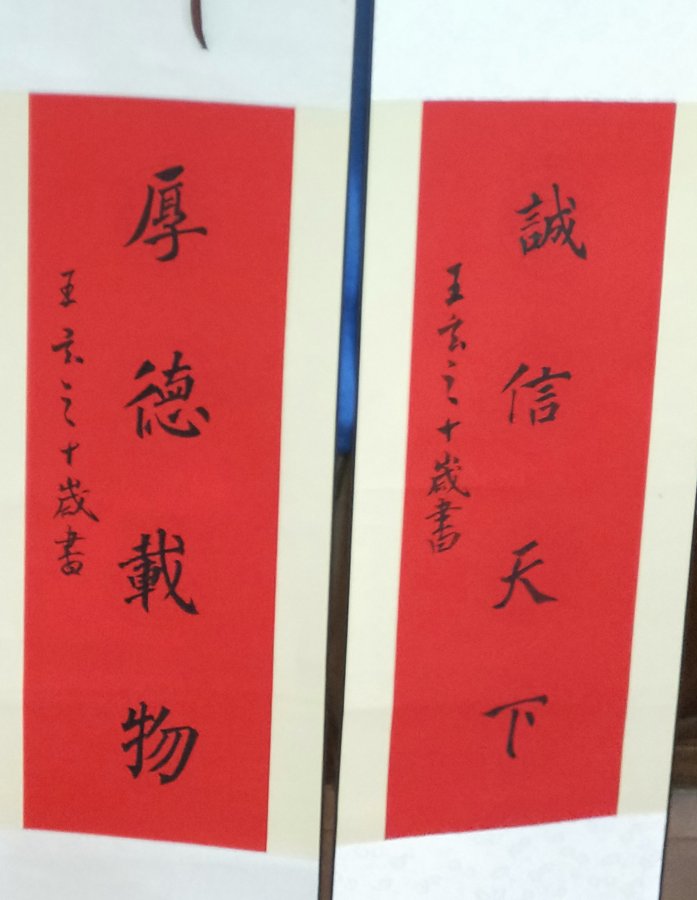 誠信天下
王玄之十歲書
厚德載物
王玄之十歲書